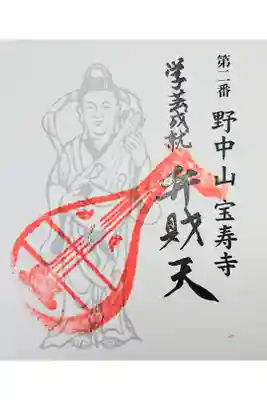 第二番 野中山 宝寿寺
学芸成就
弁財天